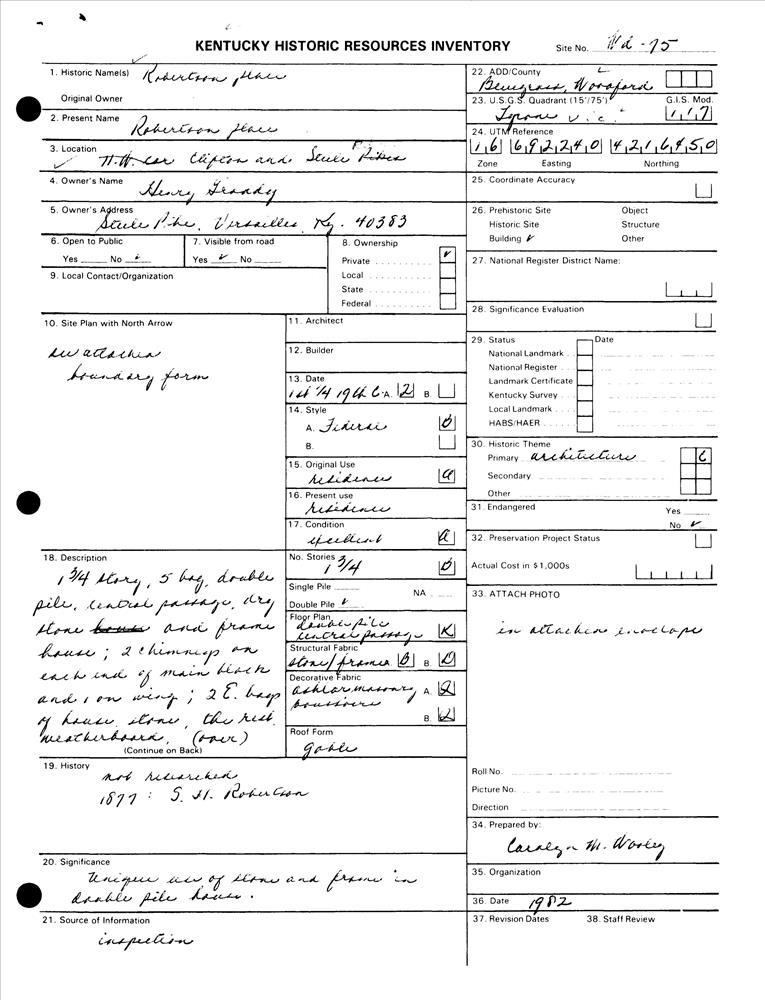 KENTUCKY HISTORIC RESOURCES INVENTORY
Site No. Wd-75
1. Historic Name(s) Robertson place
Original Owner
2. Present Name Robertson place
3. Location N.W. cor Clifton and Steele Pikes
4. Owner's Name Henry
5. Owner's Address Steele Pike, Versailles, Ky. 40383
6. Open to Public
Yes No ✓
7. Visible from road
Yes ✓ No
8. Ownership
Private ✓
Local
State
Federal
9. Local Contact/Organization
10. Site Plan with North Arrow
see attached
boundary form
11. Architect
12. Builder
13. Date
1st 1/4 19th C. A. 2 B.
14. Style
A. Federal
B.
15. Original Use
residence
16. Present use
residence
17. Condition
excellent
18. Description
1 3/4 story, 5 bay, double
pile, central passage, dry
stone house and frame
house; 2 chimneys on
each end of main block
and 1 on wing; 2 E. bays
of house stone, the rest
weatherboard, (over)
(Continue on Back)
No. Stories
1 3/4
Single Pile NA
Double Pile ✓
Floor Plan
double pile
central passage K
Structural Fabric
stone/frame B B. D
Decorative Fabric
ashlar masonry A. 2
voussoirs
B.
Roof Form
gable
19. History
not researched
1877: S. H. Robertson
20. Significance
Unique use of stone and frame in
double pile house.
21. Source of Information
inspection
22. ADD/County
Bluegrass, Woodford
23. U.S.G.S. Quadrant (15'/75') G.I.S. Mod.
Tyrone 117
24. UTM Reference
16 692240 4216450
Zone Easting Northing
25. Coordinate Accuracy
26. Prehistoric Site Object
Historic Site Structure
Building ✓ Other
27. National Register District Name:
28. Significance Evaluation
29. Status Date
National Landmark
National Register
Landmark Certificate
Kentucky Survey
Local Landmark
HABS/HAER
30. Historic Theme
Primary architecture C
Secondary
Other
31. Endangered Yes
No ✓
32. Preservation Project Status
Actual Cost in $1,000s
33. ATTACH PHOTO
in attached envelope
Roll No.
Picture No.
Direction
34. Prepared by:
Carolyn M. Wooley
35. Organization
36. Date 1982
37. Revision Dates 38. Staff Review